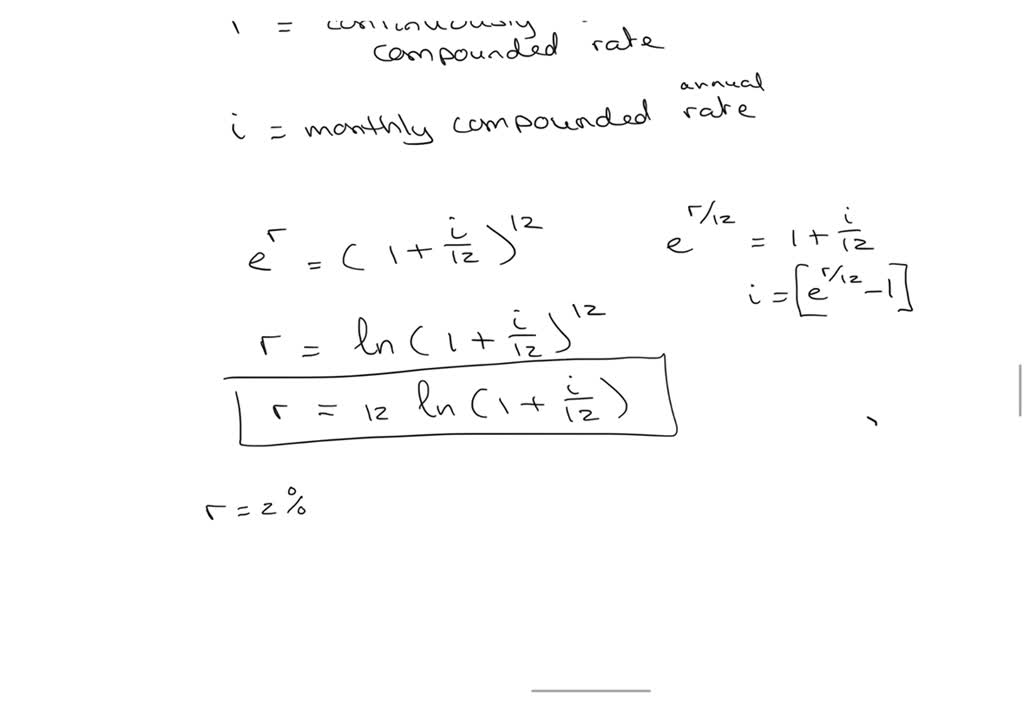 compounded rate
annual
i = monthly compounded rate
e^r = (1 + i/12)^12
r = ln(1 + i/12)^12
r = 12 ln(1 + i/12)
r = 2%
e^r/12 = 1 + i/12
i = [e^r/12 - 1]